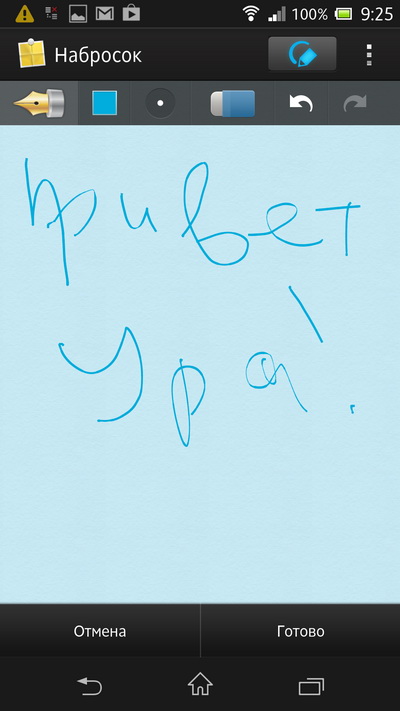 100% 9:25
Набросок
привет
ура!
Отмена Готово